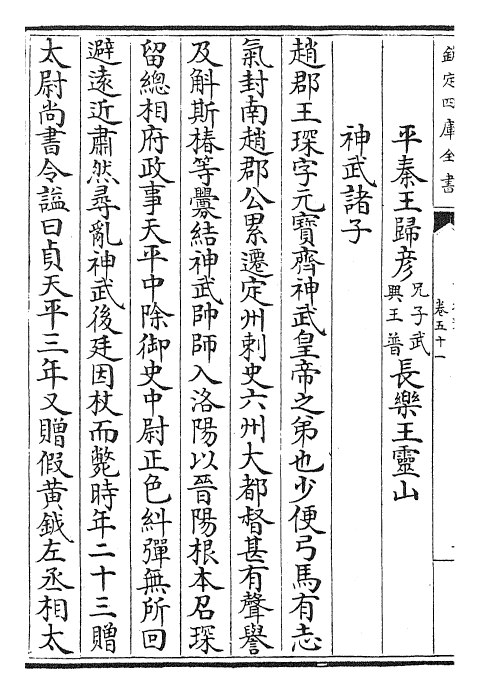 欽定四庫全書
卷五十一
平秦王歸彦兄子武興王普長樂王靈山
神武諸子
趙郡王琛字元寶齊神武皇帝之弟也少便弓馬有志
氣封南趙郡公累遷定州刺史六州大都督甚有聲譽
及斛斯椿等釁結神武帥師入洛陽以晉陽根本召琛
留總相府政事天平中除御史中尉正色糾彈無所回
避遠近肅然尋亂神武後廷因杖而斃時年二十三贈
太尉尚書令諡曰貞天平三年又贈假黄鉞左丞相太